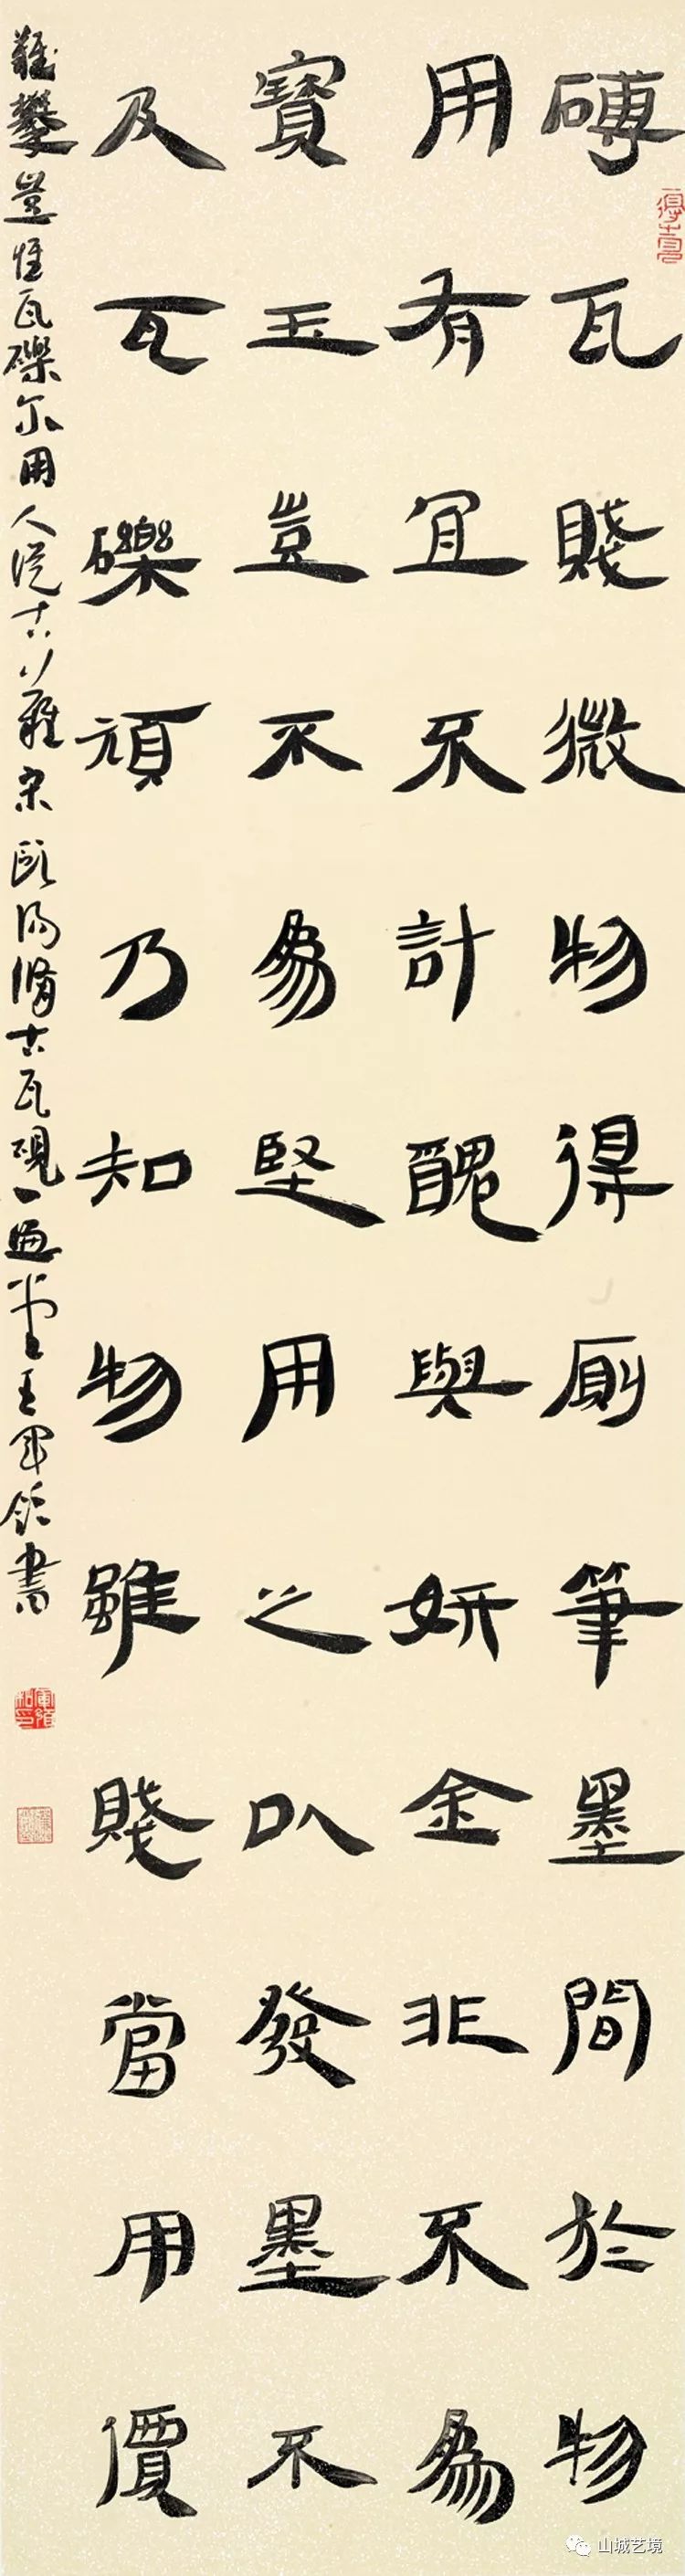 磚瓦賤微物得廁筆墨間於物
用有宜不計醜與妍金非不為
寶玉豈不為堅用之以發墨不
及瓦礫頑乃知物雖賤當用價
難攀豈惟瓦礫尔用人從古難宋歐陽脩古瓦硯一過堂王軍領書
山城艺境